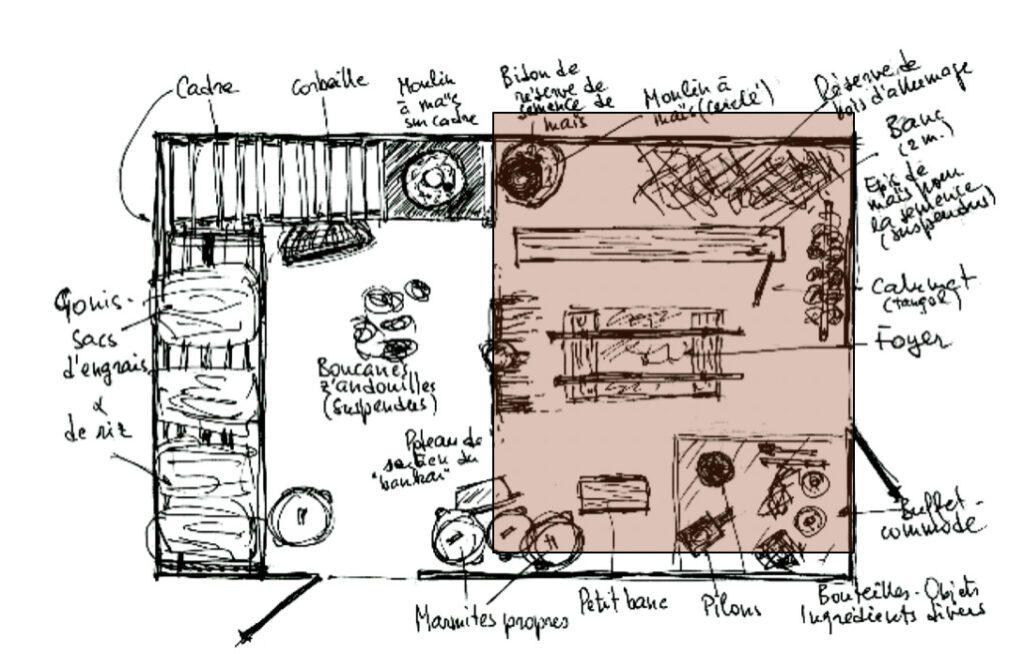 Cadre
Corbeille
Moulin
à maïs
sur cadre
Bidon de
réserve de
semence de
maïs
Moulin à
maïs (cerclé)
Réserve de
bois d'allumage
Banc
(2 m.)
Epis de
maïs pour
la semence
(suspendus)
Calumet
(tangol)
Foyer
Buffet-
commode
Bouteilles-Objets
Ingrédients divers
Pilons
Petit banc
Marmites propres
Poteau de
soutien du
Boucanes
z'andouilles
(suspendus)
Gonis-
sacs
d'engrais
&
de riz